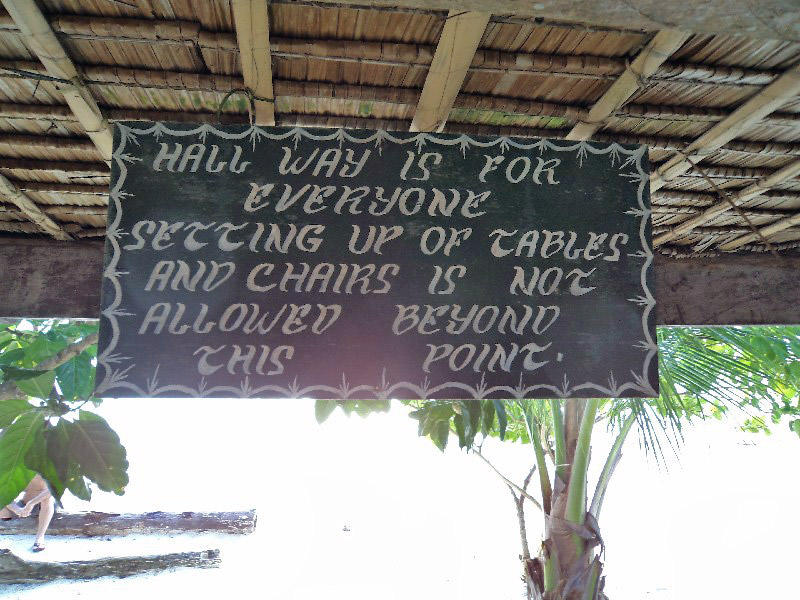 HALL WAY IS FOR
EVERYONE
SETTING UP OF TABLES
AND CHAIRS IS NOT
ALLOWED BEYOND
THIS POINT.